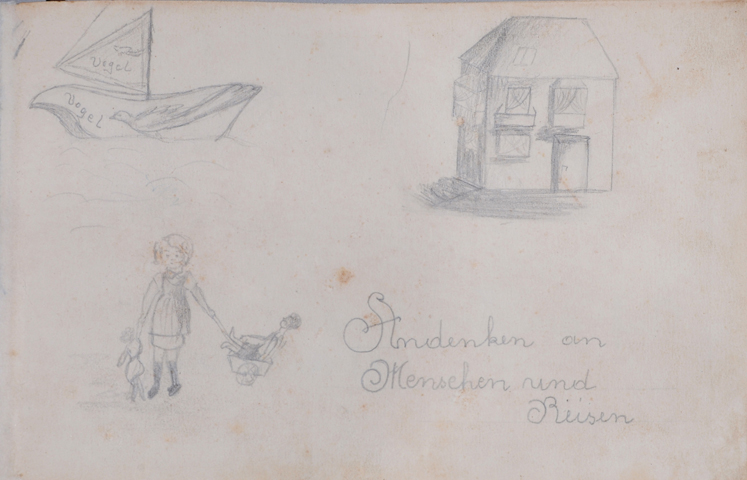 Vogel
Vogel
Andenken an
Menschen und
Reisen